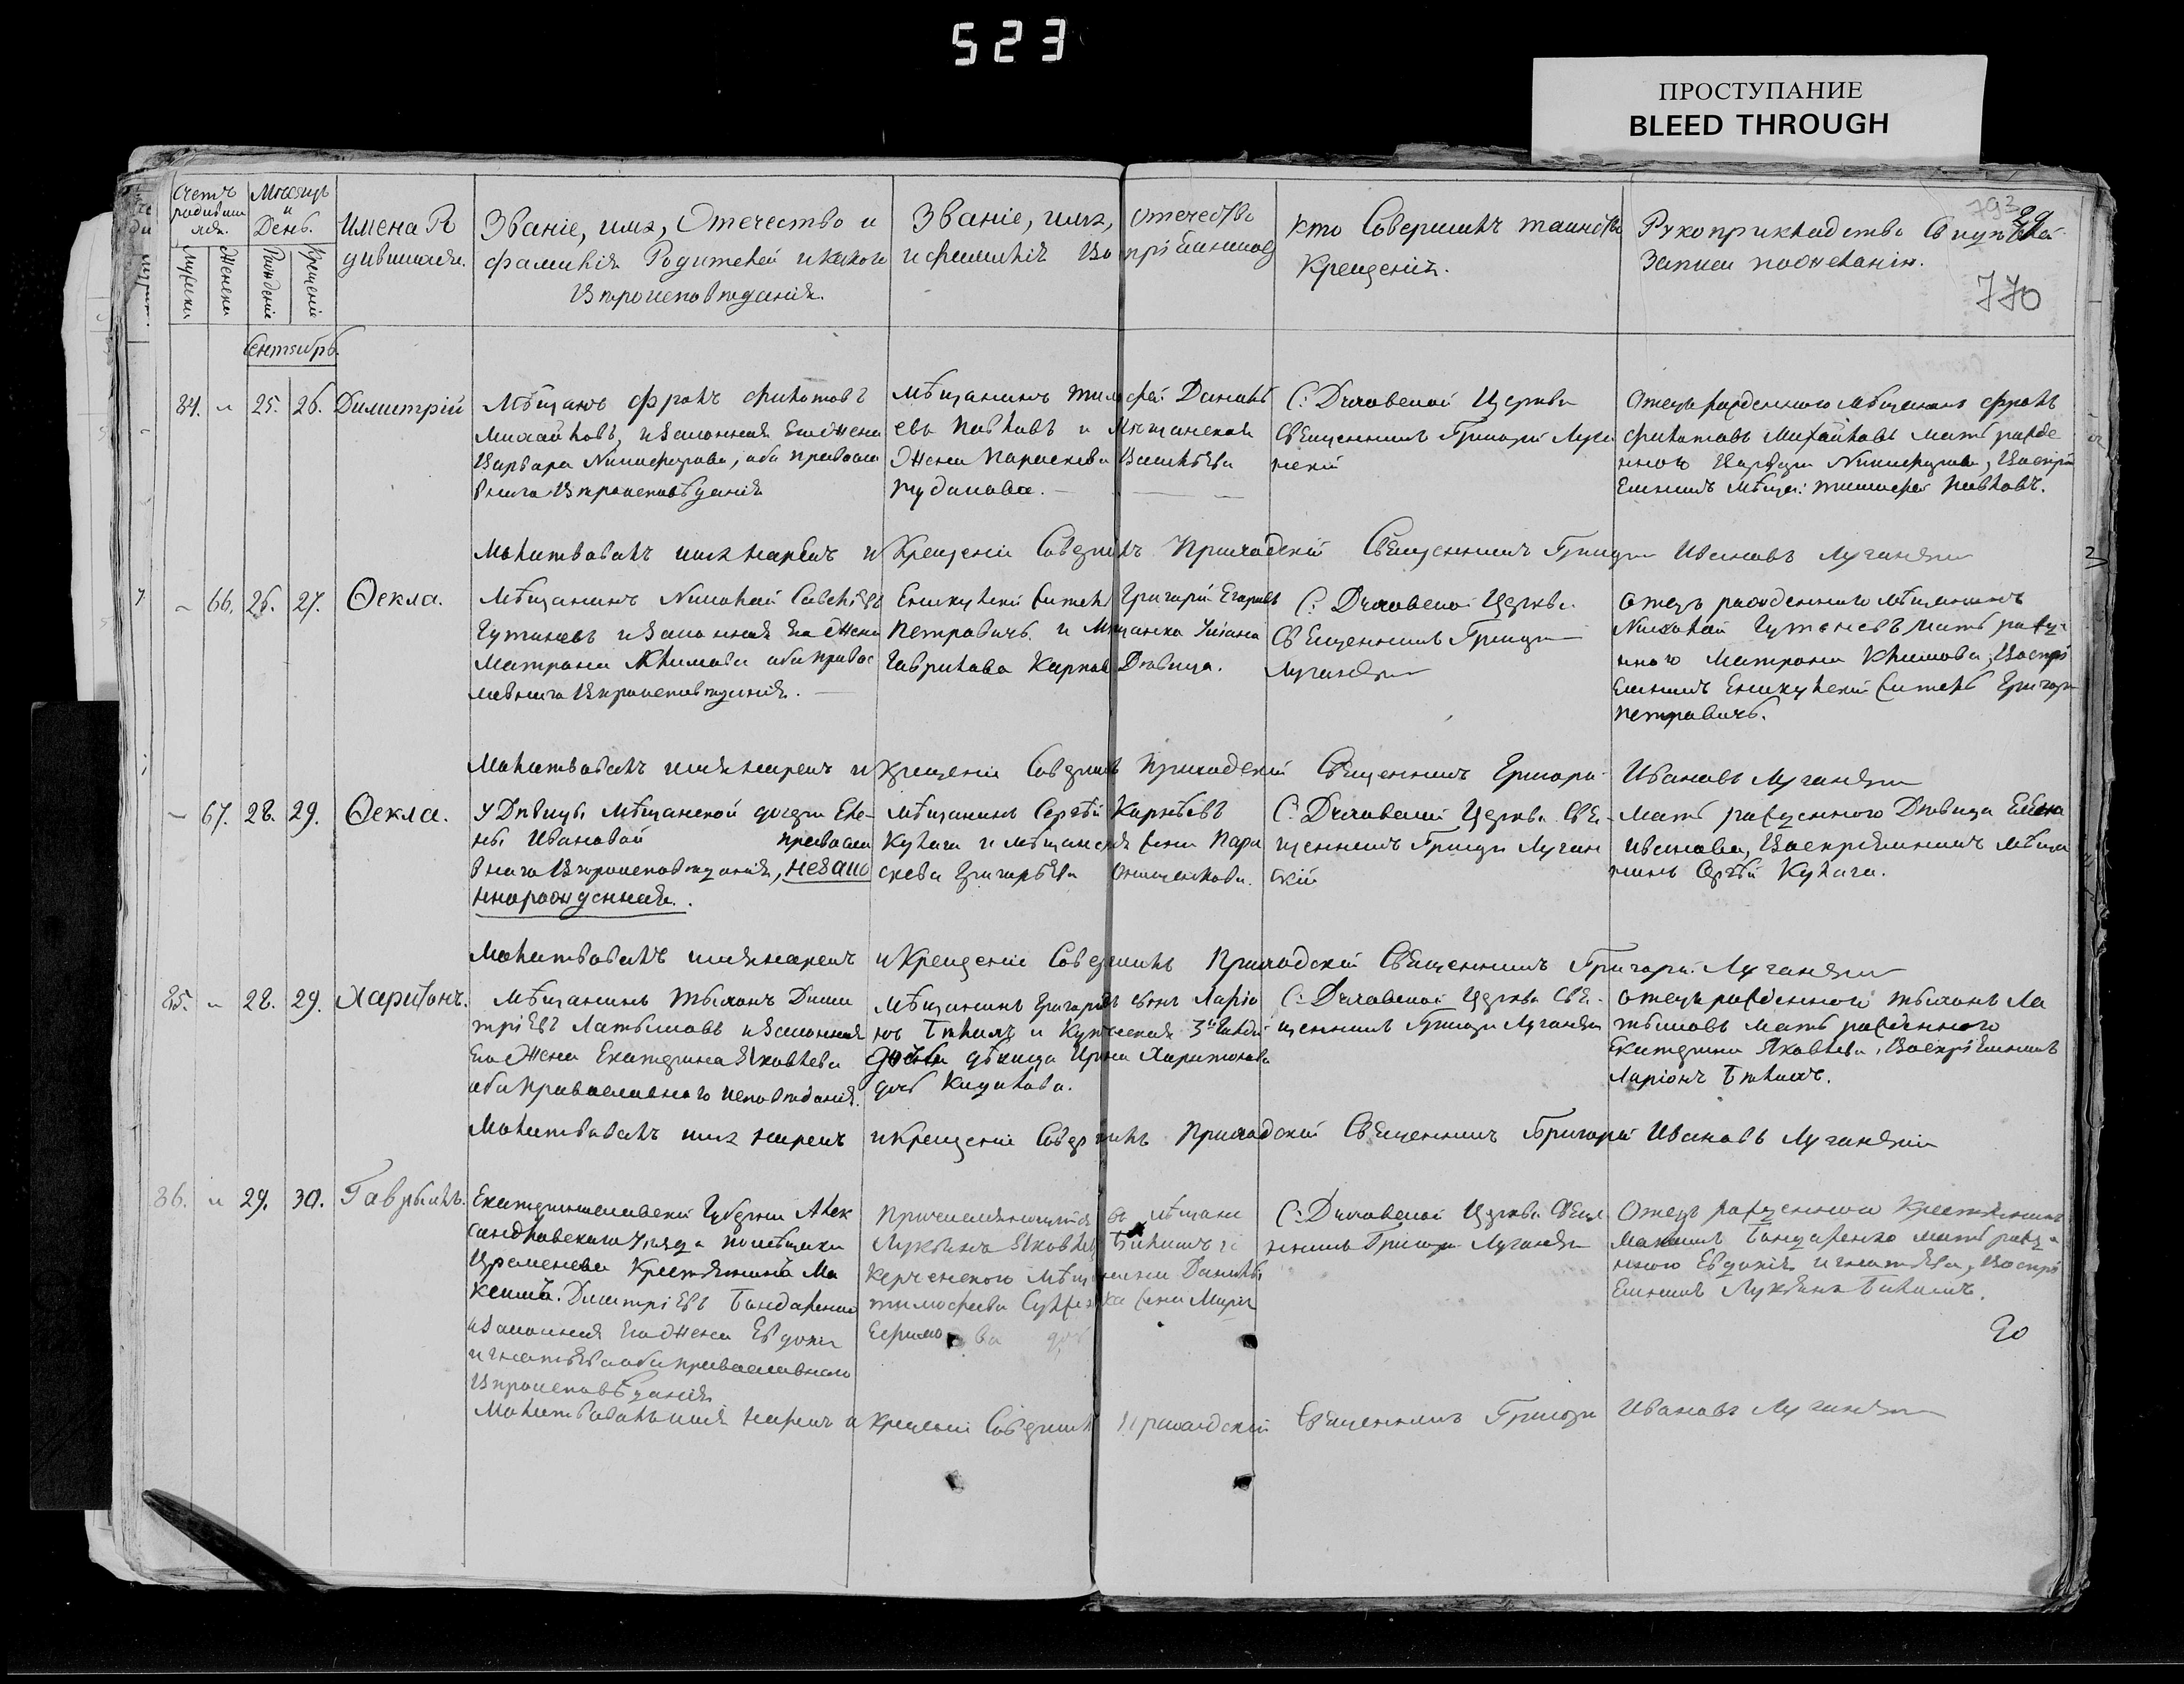 523
ПРОСТУПАНИЕ
BLEED THROUGH
Счетъ родивших
ся.
Мѣсяцъ
и
День.
Имена Ро
дившихся.
Званіе, имя, Отечество и
фамилія Родителей и какого
Вѣроисповѣданія.
Званіе, имя, отечество
и фамилія Воспріемников
Кто Совершилъ таинство
Крещенія.
Рукоприкладство Свидѣтелей
Записи по желанію.
793
29
770
Мужска
Женска
Рожденіе
Крещеніе
Сентябрь.
84. " 25. 26. Димитрій
Мѣщанъ Фролъ Филатовъ
Михайловъ, и законная Его Жена
Варвара Никифорова, оба Правосла
внаго Вѣроисповѣданія
Мѣщанинъ Тимофей Данилъ
евъ Павловъ и Мѣщанская
Жена Параскева Васильева
Рудакова.
С. Духовской Церкви
Священникъ Григорій Луган
скій
Отецъ рожденнаго Мѣщанинъ Фролъ
Филатовъ Михайловъ Мать рожде
ннаго Варвара Никифорова, Воспрі
Емникъ Мѣщан: Тимофей Павловъ.
Молитвовалъ имя нарекъ и Крещеніе Совершилъ Приходскій Священникъ Григорій Ивановъ Луганскій
" 66. 26. 27. Ѳекла.
Мѣщанинъ Николай Савельевъ
Гутниковъ и законная Его Жена
Матрона Климова оба Правос
лавнаго Вѣроисповѣданія.
Еникульскій житель Григорій Егоровъ
Петровичъ и Мѣщанка Ульяна
Гаврилова Карпова Дѣвица.
С. Духовской Церкви
Священникъ Григорій
Луганскій
Отецъ рожденнаго Мѣщанинъ
Николай Мать рожде
ннаго Матрона Климова, Воспрі
Емникъ Еникульскій житель Григорій
Петровичъ.
Молитвовалъ имя нарекъ и Крещеніе Совершилъ Приходскій Священникъ Григорій Ивановъ Луганскій
" 67. 28. 29. Ѳекла.
У Дѣвицы Мѣщанской дочери Еле-
ны Ивановой Правосла
внаго Вѣроисповѣданія, незако
ннорожденная.
Мѣщанинъ Сергѣй Карнѣевъ
Кулага и Мѣщанская жена Пара
скева Григорьева Онищенкова.
С. Духовской Церкви Свя-
щенникъ Григорій Луган
скій
Мать рожденнаго Дѣвица Елена
Иванова, Воспріемникъ Мѣща
нинъ Сергѣй Кулага.
Молитвовалъ имя нарекъ и Крещеніе Совершилъ Приходскій Священникъ Григорій Луганскій
85. " 28. 29. Харитонъ.
Мѣщанинъ Тихонъ Дими
тріевъ Латышовъ и законная
Его Жена Екатерина Яковлева
оба Православнаго исповѣданія.
Мѣщанинъ Григорьевъ сынъ Ларіо
нъ Бѣликъ и Купеческая 3й Гильдіи
дочь дѣвица Ирина Харитонова
дочь
С. Духовской Церкви Свя-
щенникъ Григорій Луганскій
Отецъ рожденнаго Тихонъ Ла
тышовъ Мать рожденнаго
Екатерина Яковлева, Воспріемникъ
Ларіонъ Бѣликъ.
Молитвовалъ имя нарекъ и Крещеніе Совершилъ Приходскій Священникъ Григорій Ивановъ Луганскій
86. " 29. 30. Гавріилъ.
Екатеринославской Губерніи Алек
сандровскаго Уѣзда помѣщика
Крестьянинъ Ма
ксимъ Димитріевъ Бондаренко
и законная Его Жена Евдокія
Игнатьева оба православнаго
Вѣроисповѣданія
Причисляющійся въ мѣщане
Лукьянъ Яковлевъ Бѣликъ и
Керченскаго Мѣщанина Данилы
Тимофеева жена Марія
Ефимова дочь
С. Духовской Церкви Свяще
нникъ Григорій Луганскій
Отецъ рожденнаго Крестьянинъ
Максимъ Бондаренко Мать рожде
ннаго Евдокія Игнатьева, Воспрі
Емникъ Лукьянъ Бѣликъ.
Молитвовалъ имя нарекъ и Крещеніе Совершилъ Приходскій Священникъ Григорій Ивановъ Луганскій